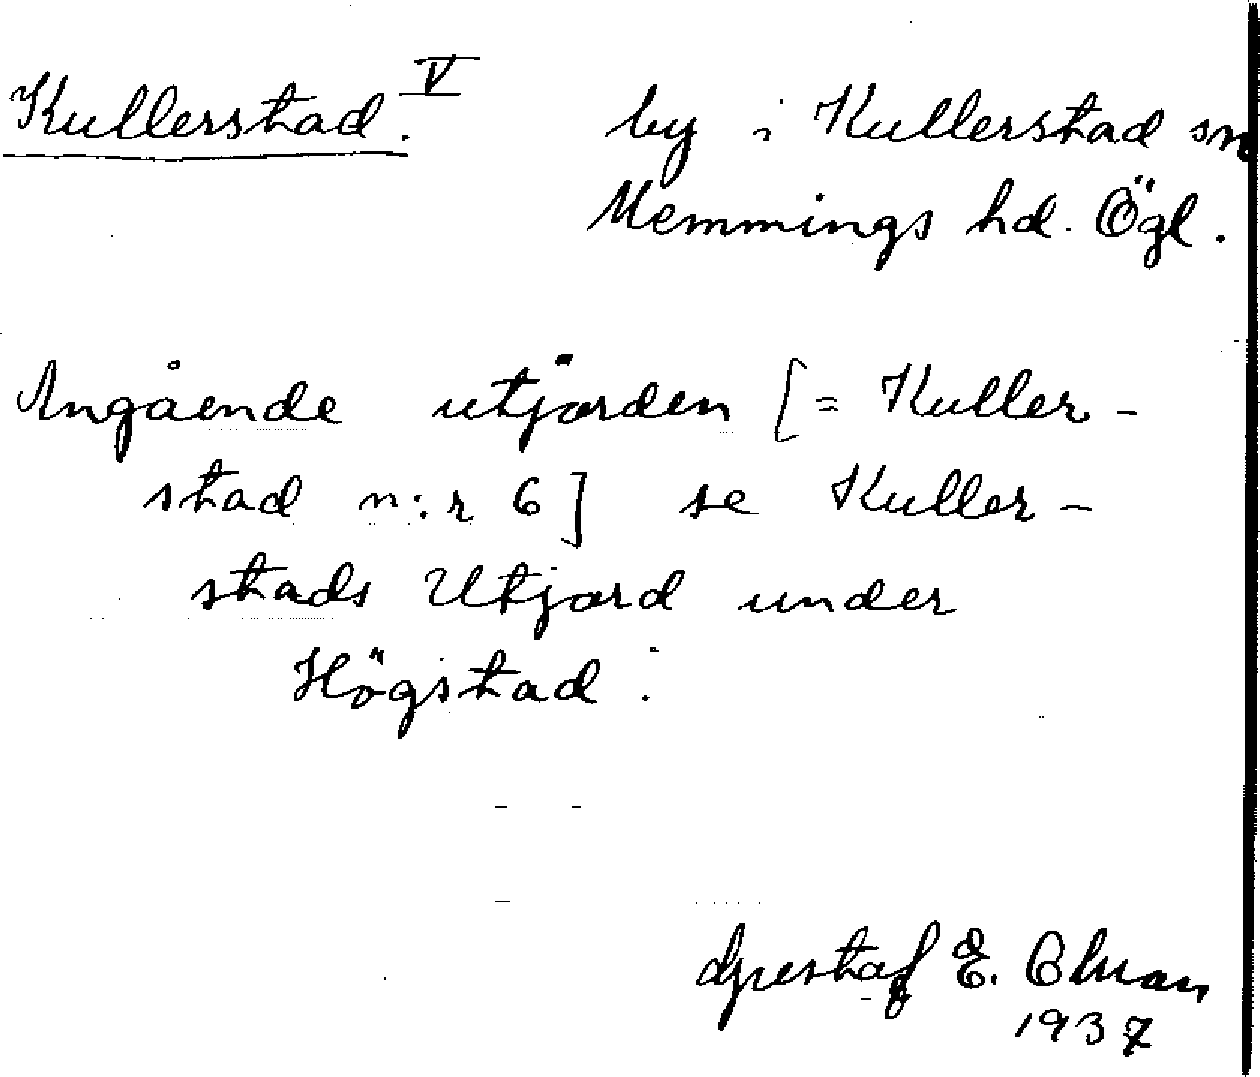 Kullerstad. V by i Kullerstad sn
Memmings hd. Ögl.
Angående utjorden [= Kuller-
stad n:r 6] se Kuller-
stads Utjord under
Högstad.
Gustaf E. Elman
1937